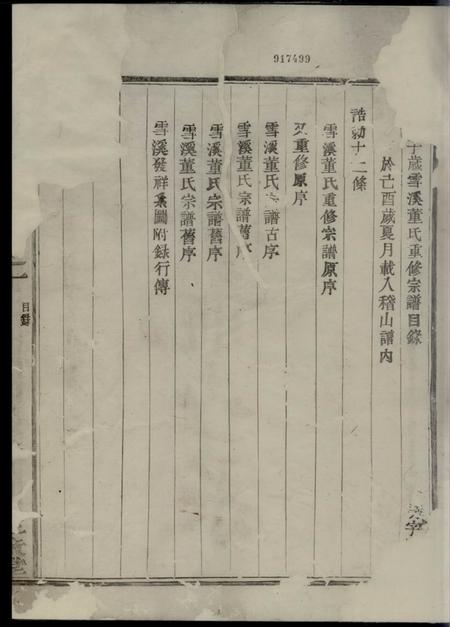 917499
歲雪溪董氏重修宗譜目錄
於己酉歲夏月載入稽山譜內
誥勅十二條
雪溪董氏重修宗譜原序
又重修原序
雪溪董氏宗譜古序
雪溪董氏宗譜舊序
雪溪董氏宗譜舊序
雪溪董氏宗譜舊序
雪溪發祥系圖附錄行傳
目錄
字
堂